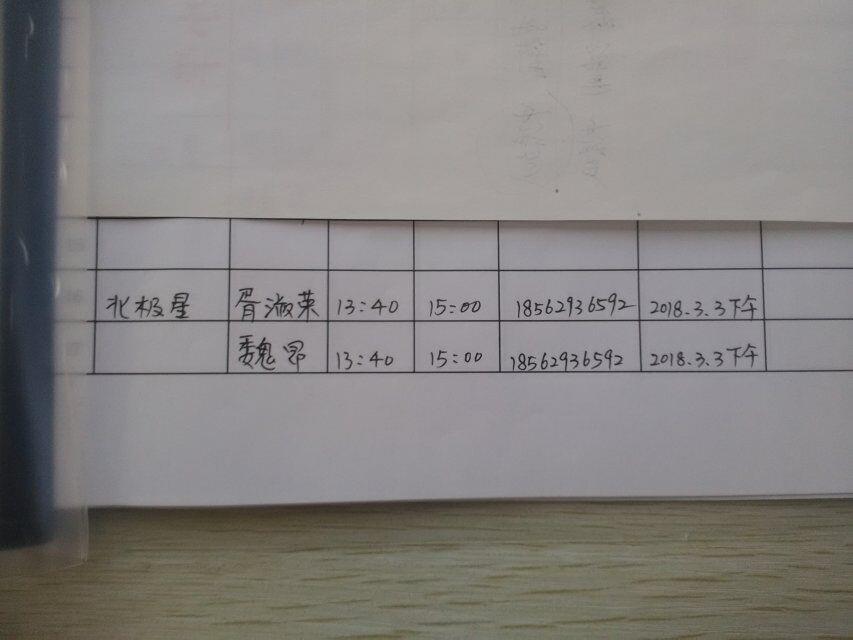 北极星 胥淑荣 13:40 15:00 18562936592 2018.3.3下午
魏昂 13:40 15:00 18562936592 2018.3.3下午